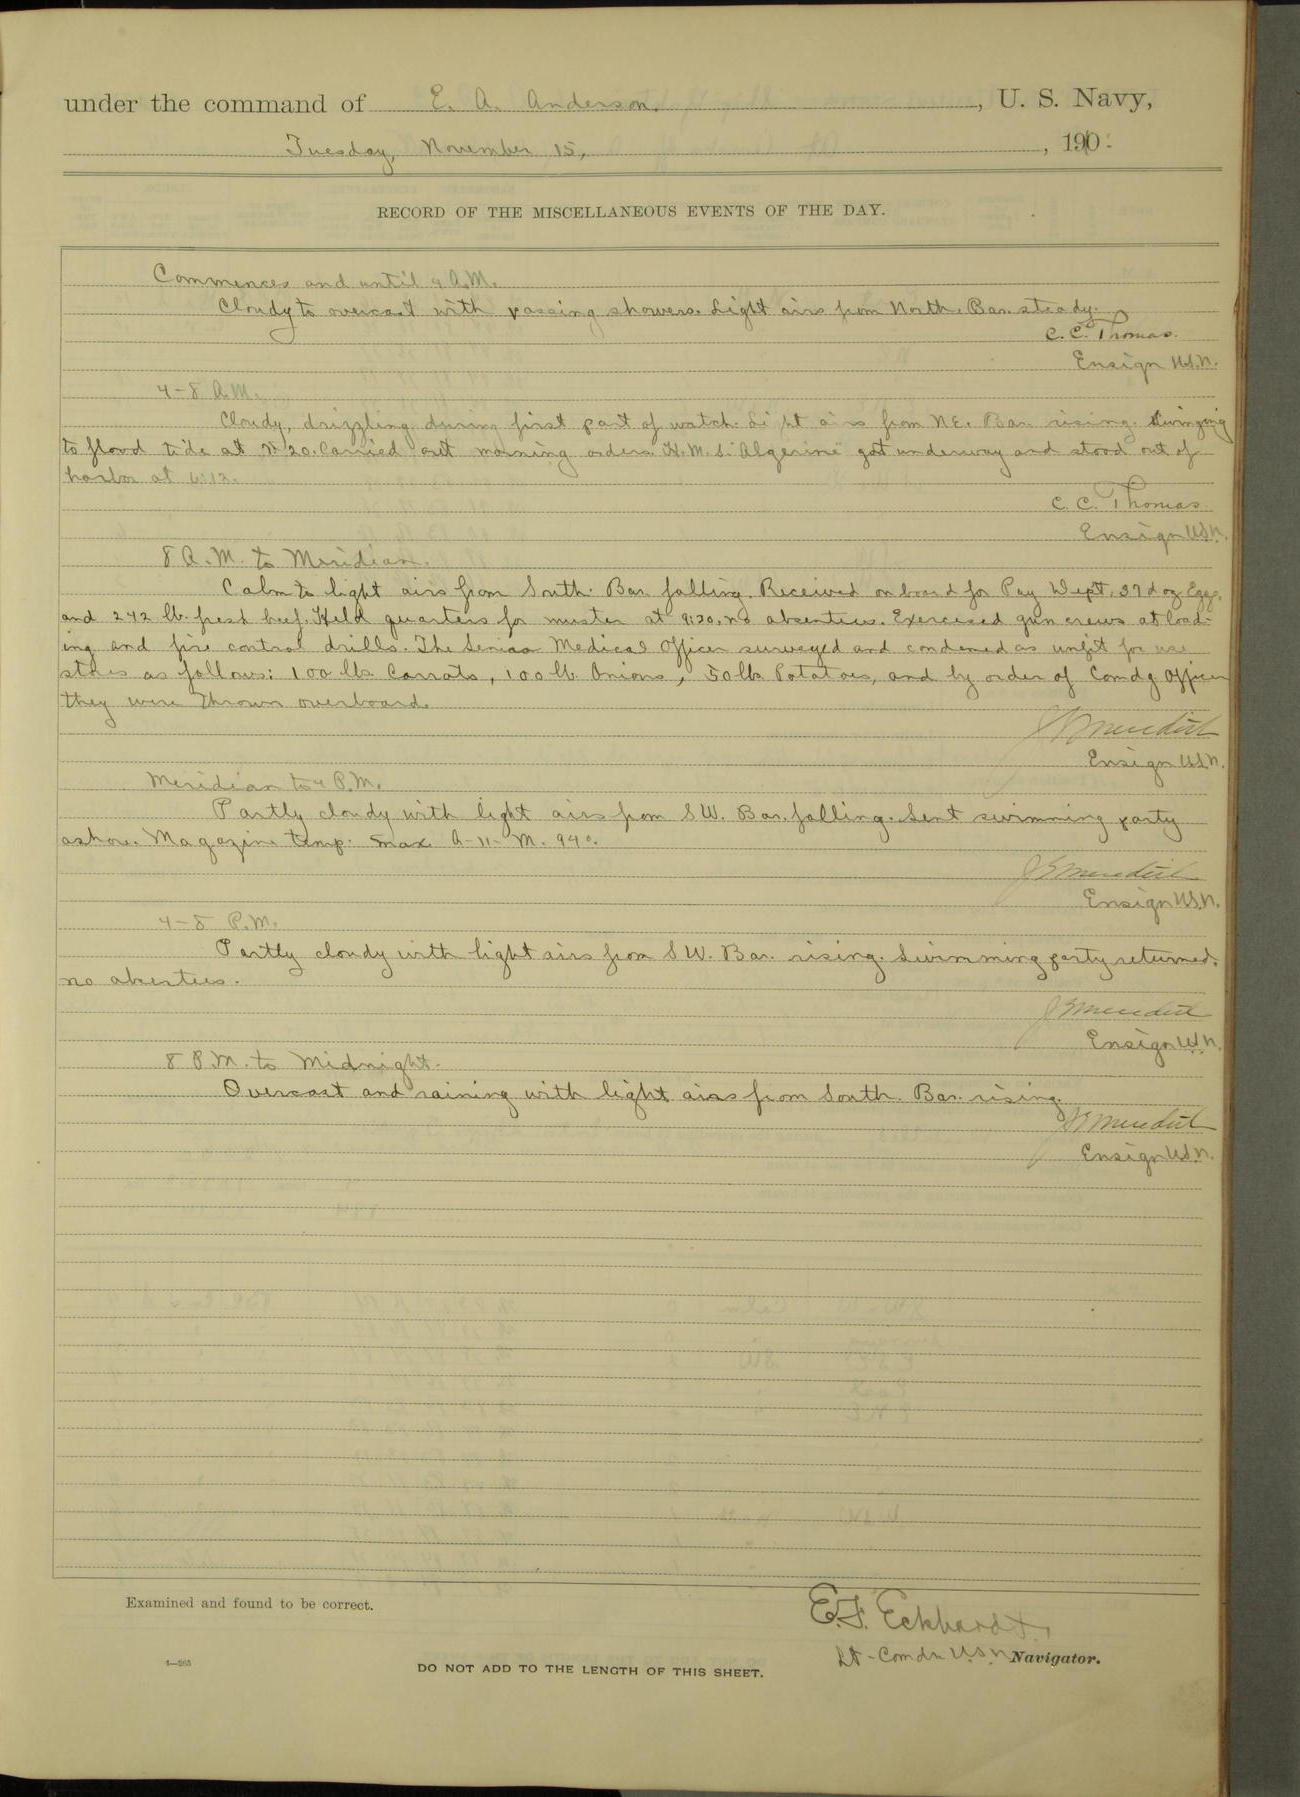 under the command of E. A. Anderson, U. S. Navy,
Tuesday, November 15, , 1910
RECORD OF THE MISCELLANEOUS EVENTS OF THE DAY.
Commences and until 4 A.M.
Cloudy to overcast with passing showers. Light airs from North. Bar. steady.
C. C. Thomas.
Ensign U.S.N.
4-8 A.M.
Cloudy, drizzling during first part of watch. Light airs from NE. Bar. rising. Swinging
to flood tide at 20. Carried out morning orders. H.M.S. "Algerine" got underway and stood out of
harbor at 6:13.
C. C. Thomas
Ensign U.S.N.
8 A.M. to Meridian.
Calm to light airs from South. Bar. falling. Received on board for Pay Dept. 37 doz Eggs,
and 242 lb. fresh beef. Held quarters for muster at 9:30, no absentees. Exercised gun crews at load-
ing and fire control drills. The Senior Medical Officer surveyed and condemed as unfit for use
stores as follows: 100 lbs. Carrots, 100 lb. Onions, 50 lbs. Potatoes, and by order of Comdg Officer
they were thrown overboard.
J S Meredith
Ensign U.S.N.
Meridian to 4 P.M.
Partly cloudy with light airs from SW. Bar. falling. Sent swimming party
ashore. Magazine temp. max. A-11-M. 94°.
J S Meredith
Ensign U.S.N.
4-8 P.M.
Partly cloudy with light airs from SW. Bar. rising. Swimming party returned.
no absentees.
J S Meredith
Ensign U.S.N.
8 P.M. to Midnight.
Overcast and raining with light airs from South. Bar. rising.
J S Meredith
Ensign U.S.N.
Examined and found to be correct.
E. F. Eckhardt,
Lt-Comdr U.S.N. Navigator.
4—265
DO NOT ADD TO THE LENGTH OF THIS SHEET.